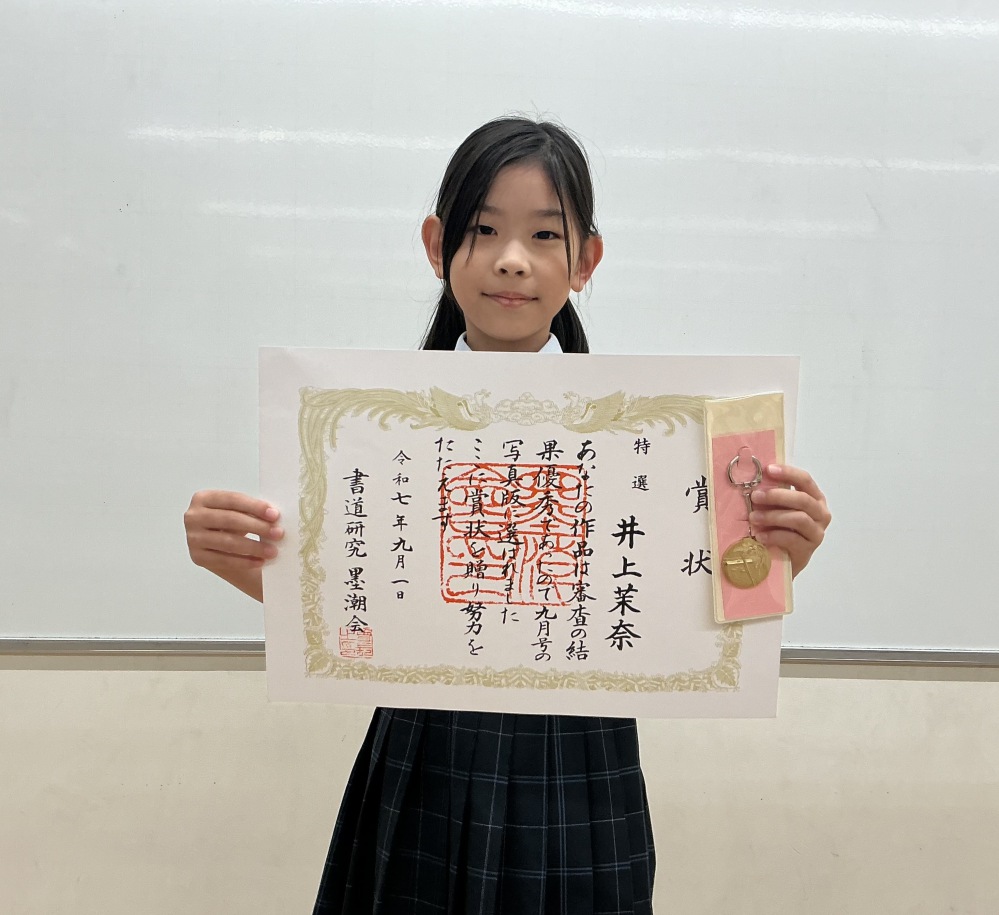 賞状
特選
井上茉奈
あなたの作品は審査の結
果優秀であったので九月号の
写真版に選ばれました
ここに賞状を贈り努力を
たたえます
令和七年九月一日
書道研究 墨潮会